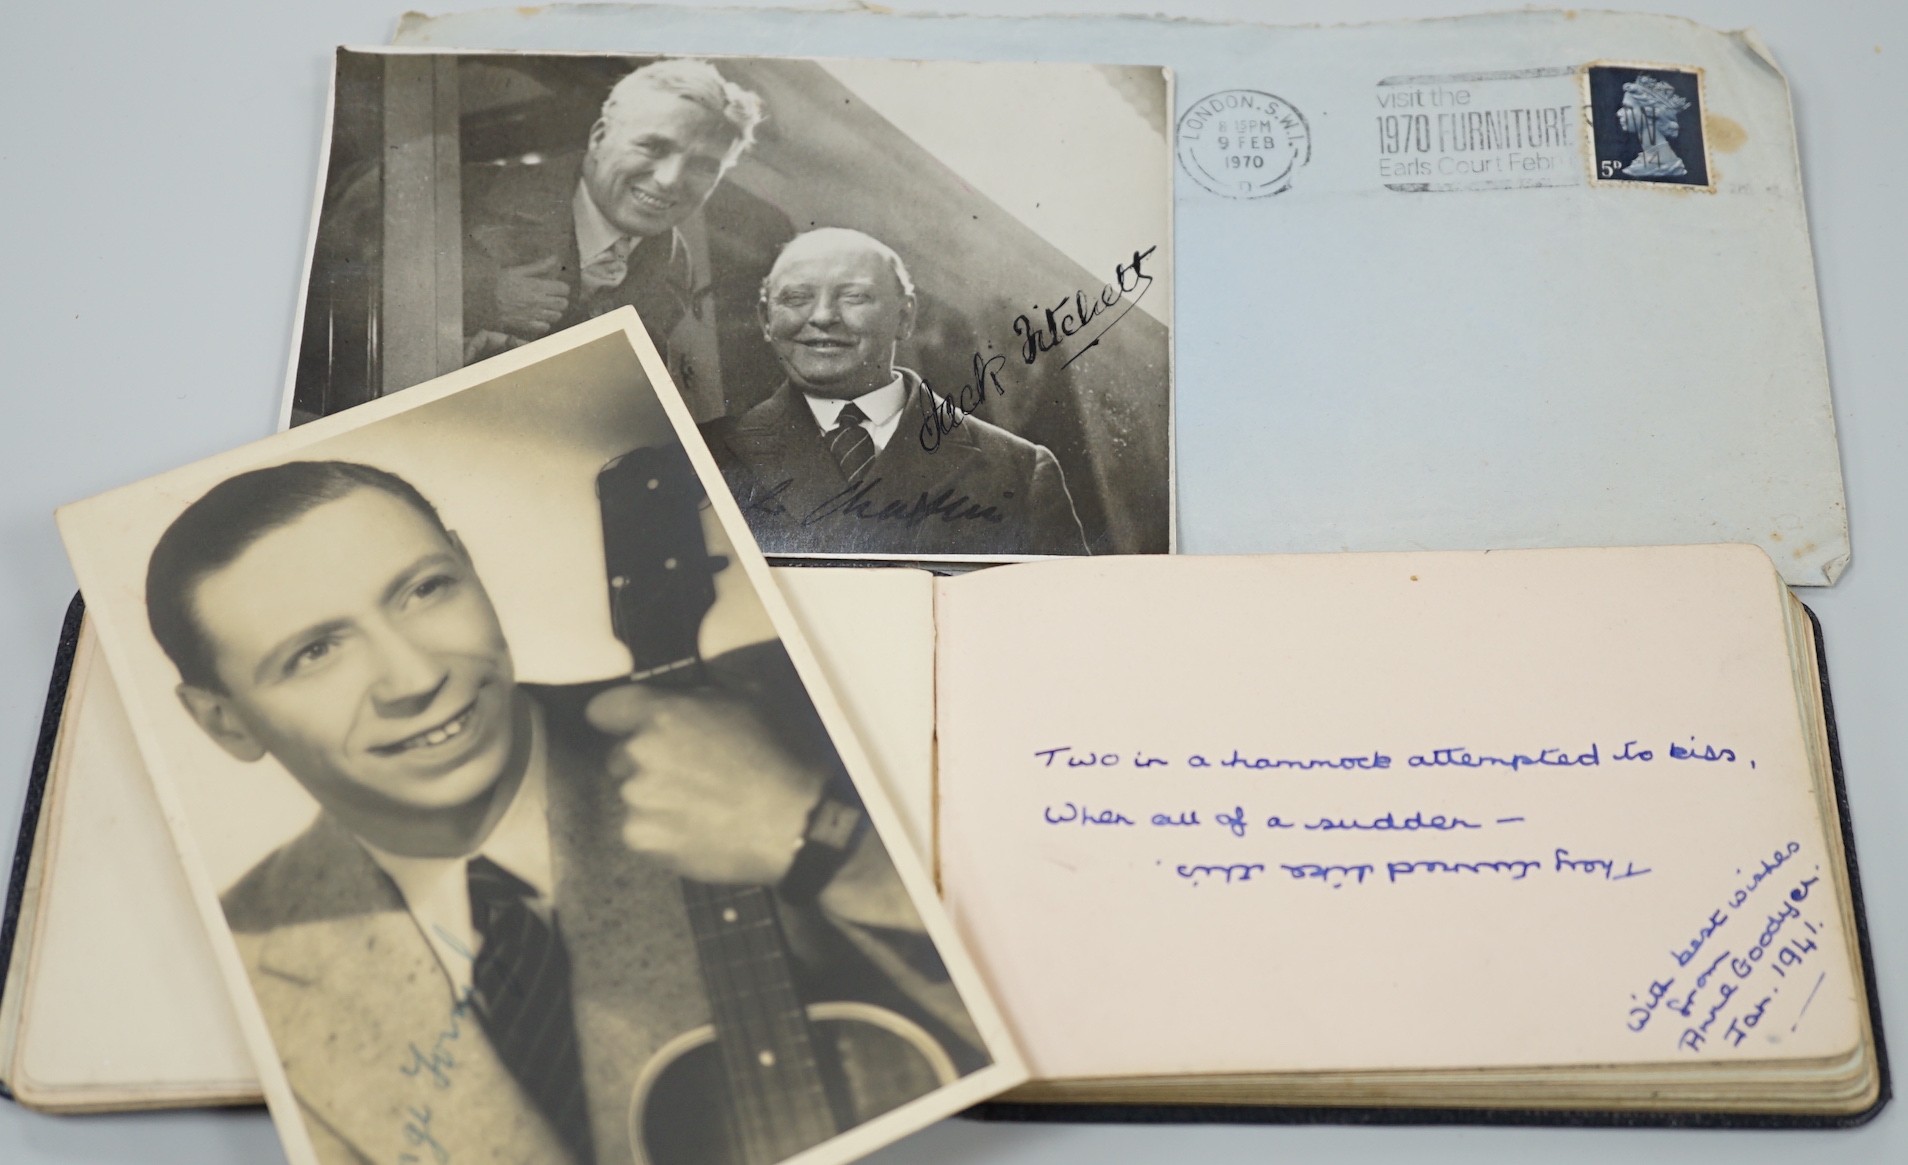 LONDON. S.W.1.
8 15PM
9 FEB
1970
D
visit the
1970 FURNITURE
Earls Court Febr
5D
Jack Fitchett
Chaplin
ge Form
Two in a hammock attempted to kiss,
When all of a sudden —
They turned like this.
With best wishes
from
Anne Goodyer.
Jan. 1941.